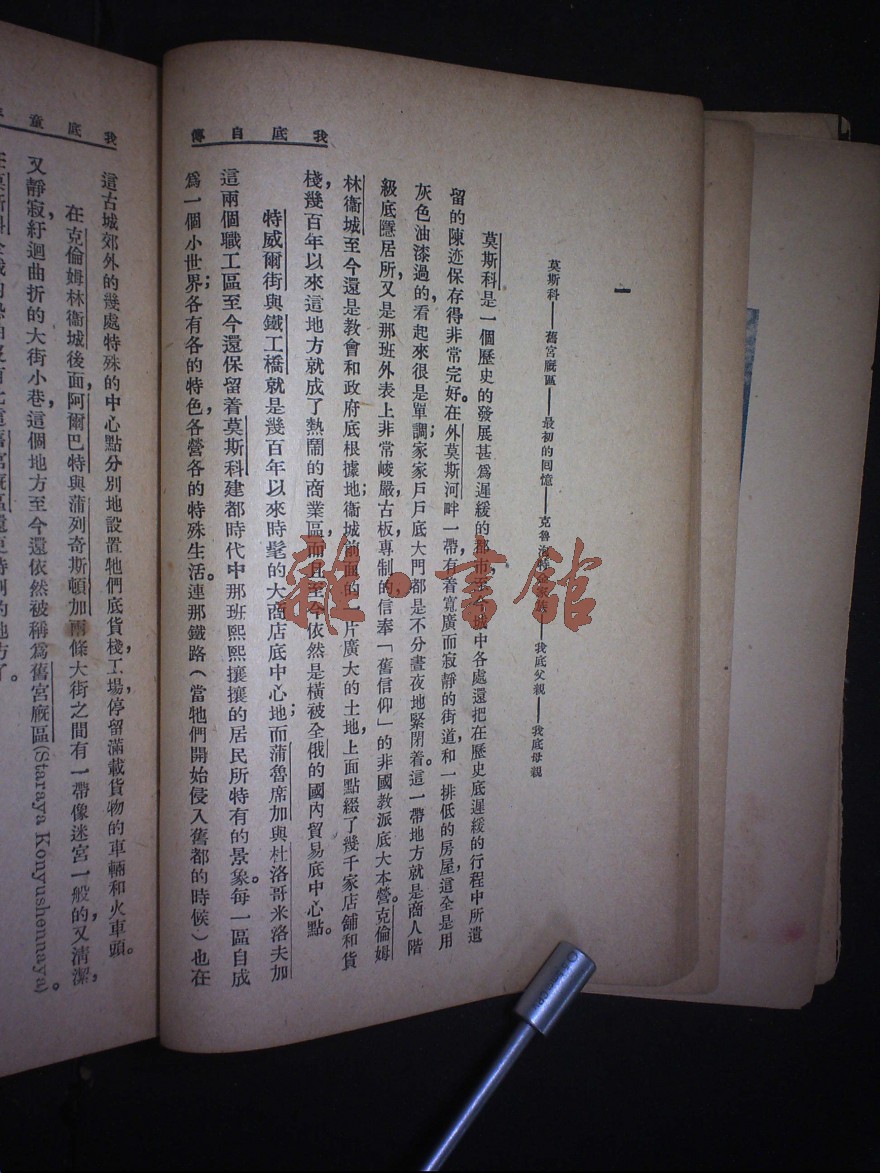 我底自傳
一
莫斯科——舊宮廐區——最初的回憶——克魯泡特金家族——我底父親——我底母親
莫斯科是一個歷史的發展甚爲遲緩的都市，至今城中各處還把在歷史底遲緩的行程中所遺
留的陳迹保存得非常完好。在外莫斯河畔一帶有着寬廣而寂靜的街道，和一排低的房屋，這全是用
灰色油漆過的，看起來很是單調；家家戶戶底大門都是不分晝夜地緊閉着。這一帶地方就是商人階
級底隱居所，又是那班外表上非常峻嚴，古板，專制的，信奉「舊信仰」的非國教派底大本營。克倫姆
林衞城至今還是教會和政府底根據地；衞城前面的一片廣大的土地，上面點綴了幾千家店舖和貨
棧，幾百年以來這地方就成了熱鬧的商業區，而且至今依然是橫被全俄的國內貿易底中心點。
特威爾街與鐵工橋就是幾百年以來時髦的大商店底中心地；而蒲魯席加與杜洛哥米洛夫加
這兩個職工區至今還保留着莫斯科建都時代中那班熙熙攘攘的居民所特有的景象。每一區自成
爲一個小世界；各有各的特色，各營各的特殊生活。連那鐵路（當牠們開始侵入舊都的時候）也在
我底童
這古城郊外的幾處特殊的中心點分別地設置牠們底貨棧，工場，停留滿載貨物的車輛和火車頭。
在克倫姆林衞城後面，阿爾巴特與蒲列奇斯頓加兩條大街之間有一帶像迷宮一般的，又清潔，
又靜寂，紆迴曲折的大街小巷，這個地方至今還依然被稱爲舊宮廐區(Staraya Konyushennaya)。
雜·書館